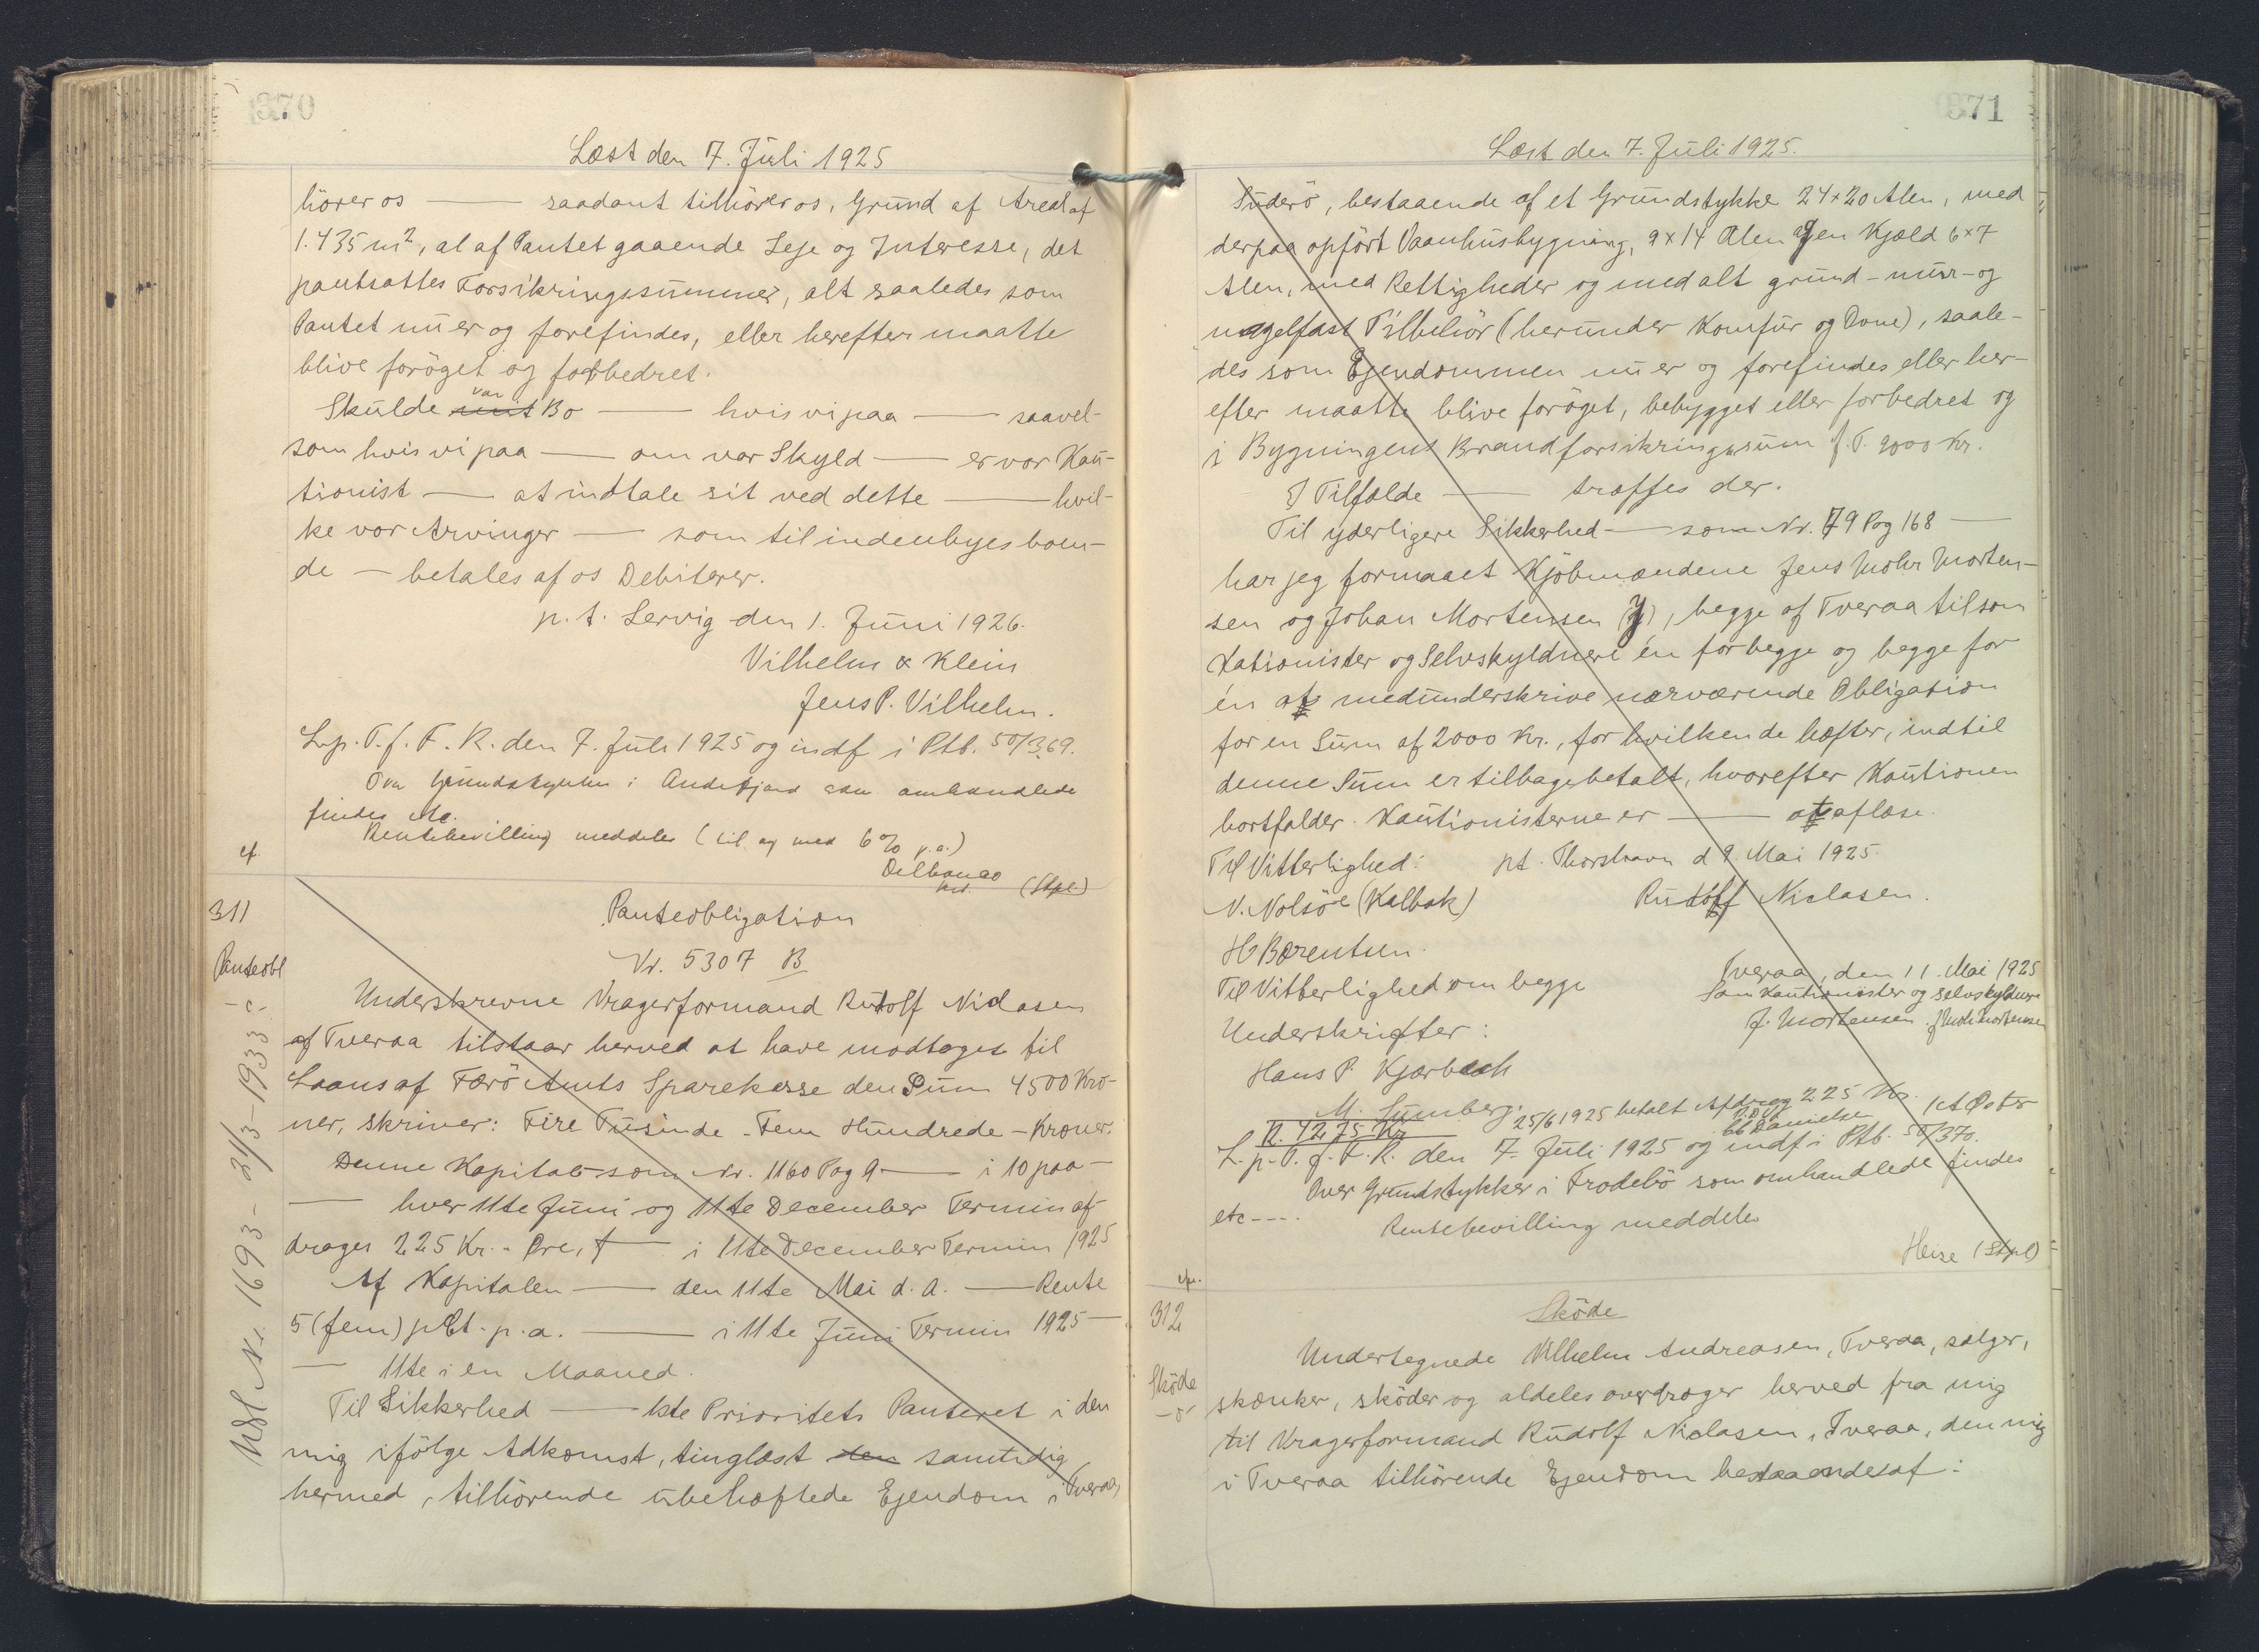 370
Læst den 7. Juli 1925
hörer os — saadant tilhörer os, Grund af Areal af
1.435 m², al af Pantet gaaende Leje og Interesse, det
pantsattes Forsikringssummer, alt saaledes som
Pantet nu er og forefindes, eller herefter maatte
blive forøget og forbedret.
Skulde mit vor Bo — hvis vi paa — saavel-
som hvis vi paa — om vor Skyld — er vor Kau-
tionist — at indtale sit ved dette — hvil-
ke vor Arvinger — som til indenbyes boen-
de — betales af os Debitorer.
p.t. Lervig den 1. Juni 1926.
Vilhelm & Klein
Jens P. Vilhelm.
L. p. T. f. F. R. den 7. Juli 1925 og indf i Ptb. 50/369.
Over Grundstykker i Andefjord som omhandlede
findes etc.
Rentebevilling meddeles (til og med 6% p.a.)
Delbanco
kst. (Stpl)
cf.
311
Panteobl
- c -
Udsl Nr. 1693 - 31/3 - 1933
Panteobligation
Nr. 5307 B
Underskrevne Vragerformand Rudolf Niclasen
af Tveraa tilstaar herved at have modtaget til
Laans af Færö Amts Sparekasse den Sum 4500 Kro-
ner, skriver: Fire Tusinde - Fem Hundrede - Kroner.
Denne Kapital som Nr. 1160 Pag 9 — i 10 paa —
— hver 11te Juni og 11te December Termin af-
drages 225 Kr. - Øre, — i 11te December Termin 1925
Af Kapitalen — den 11te Mai d. A. — Rente
5 (fem) pCt. p.a. — i 11te Juni Termin 1925 —
— 11te i en Maaned.
Til Sikkerhed — 1ste Prioritets Panteret i den
mig ifölge Adkomst, tinglæst den samtidig
hermed, tilhörende ubehæftede Ejendom i Tveraa,
371
Læst den 7. Juli 1925.
Suderö, bestaaende af et Grundstykke 24 x 20 Alen, med
derpaa opfört Vaanhusbygning, 9 x 14 Alen og en Kjæld 6 x 7
Alen, med Rettigheder og med alt grund- mur- og
nagelfast Tilbehör (herunder Komfur og Ovne), saale-
des som Ejendommen nu er og forefindes eller her-
efter maatte blive foröget, bebygget eller forbedret og
i Bygningens Brandforsikringssum f. T. 9000 Kr.
I Tilfælde — træffes der.
Til yderligere Sikkerhed — som Nr. 79 Pag 168 —
har jeg formaaet Kjöbmændene Jens Mohr Morten-
sen og Johan Mortensen (J), begge af Tveraa til som
Kationister og Selvskyldnere én for begge og begge for
én at medunderskrive nærværende Obligation
for en Sum af 2000 Kr., for hvilken de hæfter, indtil
denne Sum er tilbagebetalt, hvorefter Kautionen
bortfalder. Kautionisterne er — at aflæse.
Til Vitterlighed: pt. Thorshavn d 9. Mai 1925
N. Nolsöe (Kalbak) Rudolf Niclasen.
H Bærentsen.
Til Vitterlighed om begge
Underskrifter:
Tveraa, den 11. Mai 1925
Som Kautionister og Selvskyldnere
J. Mortensen J Mohr Mortensen
Hans P. Kjærbech
M. Sumberg.
R. 4275 Kr 25/6 1925 betalt Afdrag 225 Kr.
L. p. T. f. F. R. den 7. Juli 1925 og indf i Ptb. 50/370.
Over Grundstykker i Frodebö som omhandlede findes
etc ---.
Rentebevilling meddeles
Heise (Stpl)
312
Sköde
Sköde
Undertegnede Vilhelm Andreasen, Tveraa, sælger,
skænker, sköder og aldeles overdrager herved fra mig
til Vragerformand Rudolf Niclasen, Tveraa, den mig
i Tveraa tilhörende Ejendom bestaaende af: